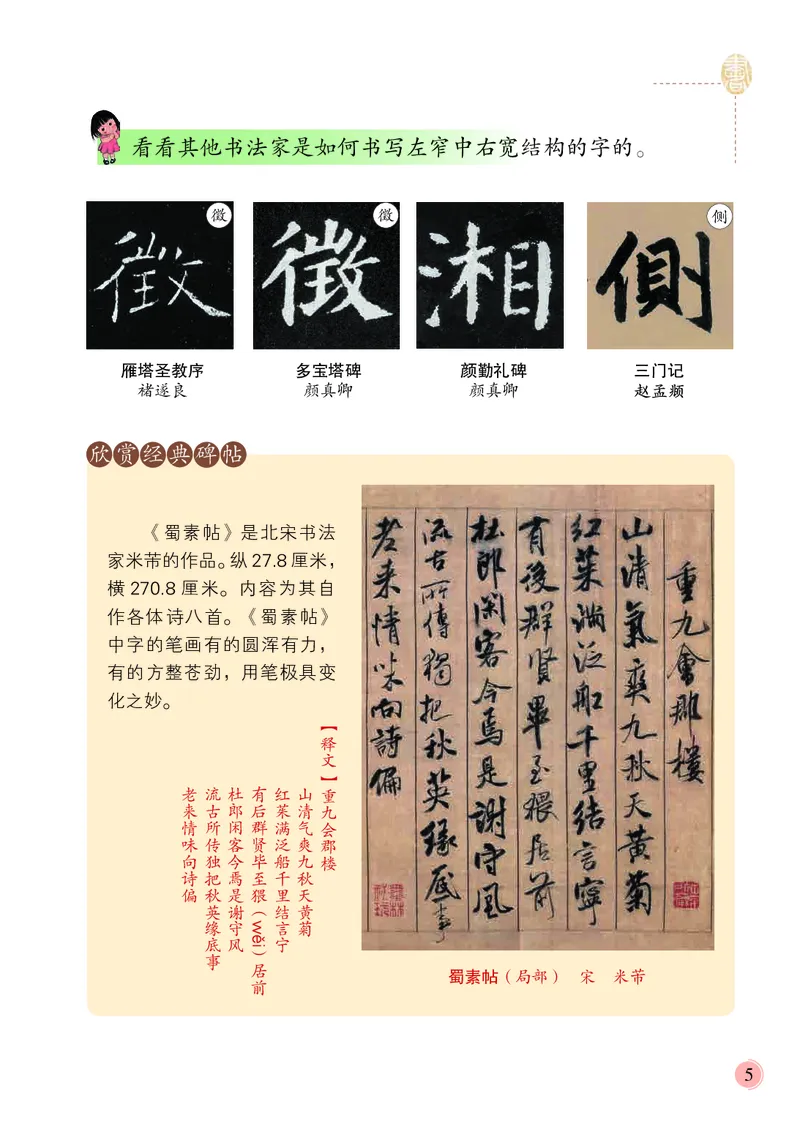 看看其他书法家是如何书写左窄中右宽结构的字的。
徵
徵
側
徵
徵
湘
側
雁塔圣教序
褚遂良
多宝塔碑
颜真卿
颜勤礼碑
颜真卿
三门记
赵孟𫖯
欣赏经典碑帖
《蜀素帖》是北宋书法
家米芾的作品。纵27.8厘米，
横270.8厘米。内容为其自
作各体诗八首。《蜀素帖》
中字的笔画有的圆浑有力，
有的方整苍劲，用笔极具变
化之妙。
【释文】重九会郡楼
山清气爽九秋天黄菊
红茱满泛船千里结言宁
有后群贤毕至猥（wěi）居前
杜郎闲客今焉是谢守风
流古所传独把秋英缘底事
老来情味向诗偏
重九會郡樓
山清氣爽九秋天黃菊
紅茱滿泛船千里結言寧
有後群賢畢至猥居前
杜郎閑客今焉是謝守風
流古所傳獨把秋英緣底事
老来情味向詩偏
蜀素帖（局部） 宋 米芾
5